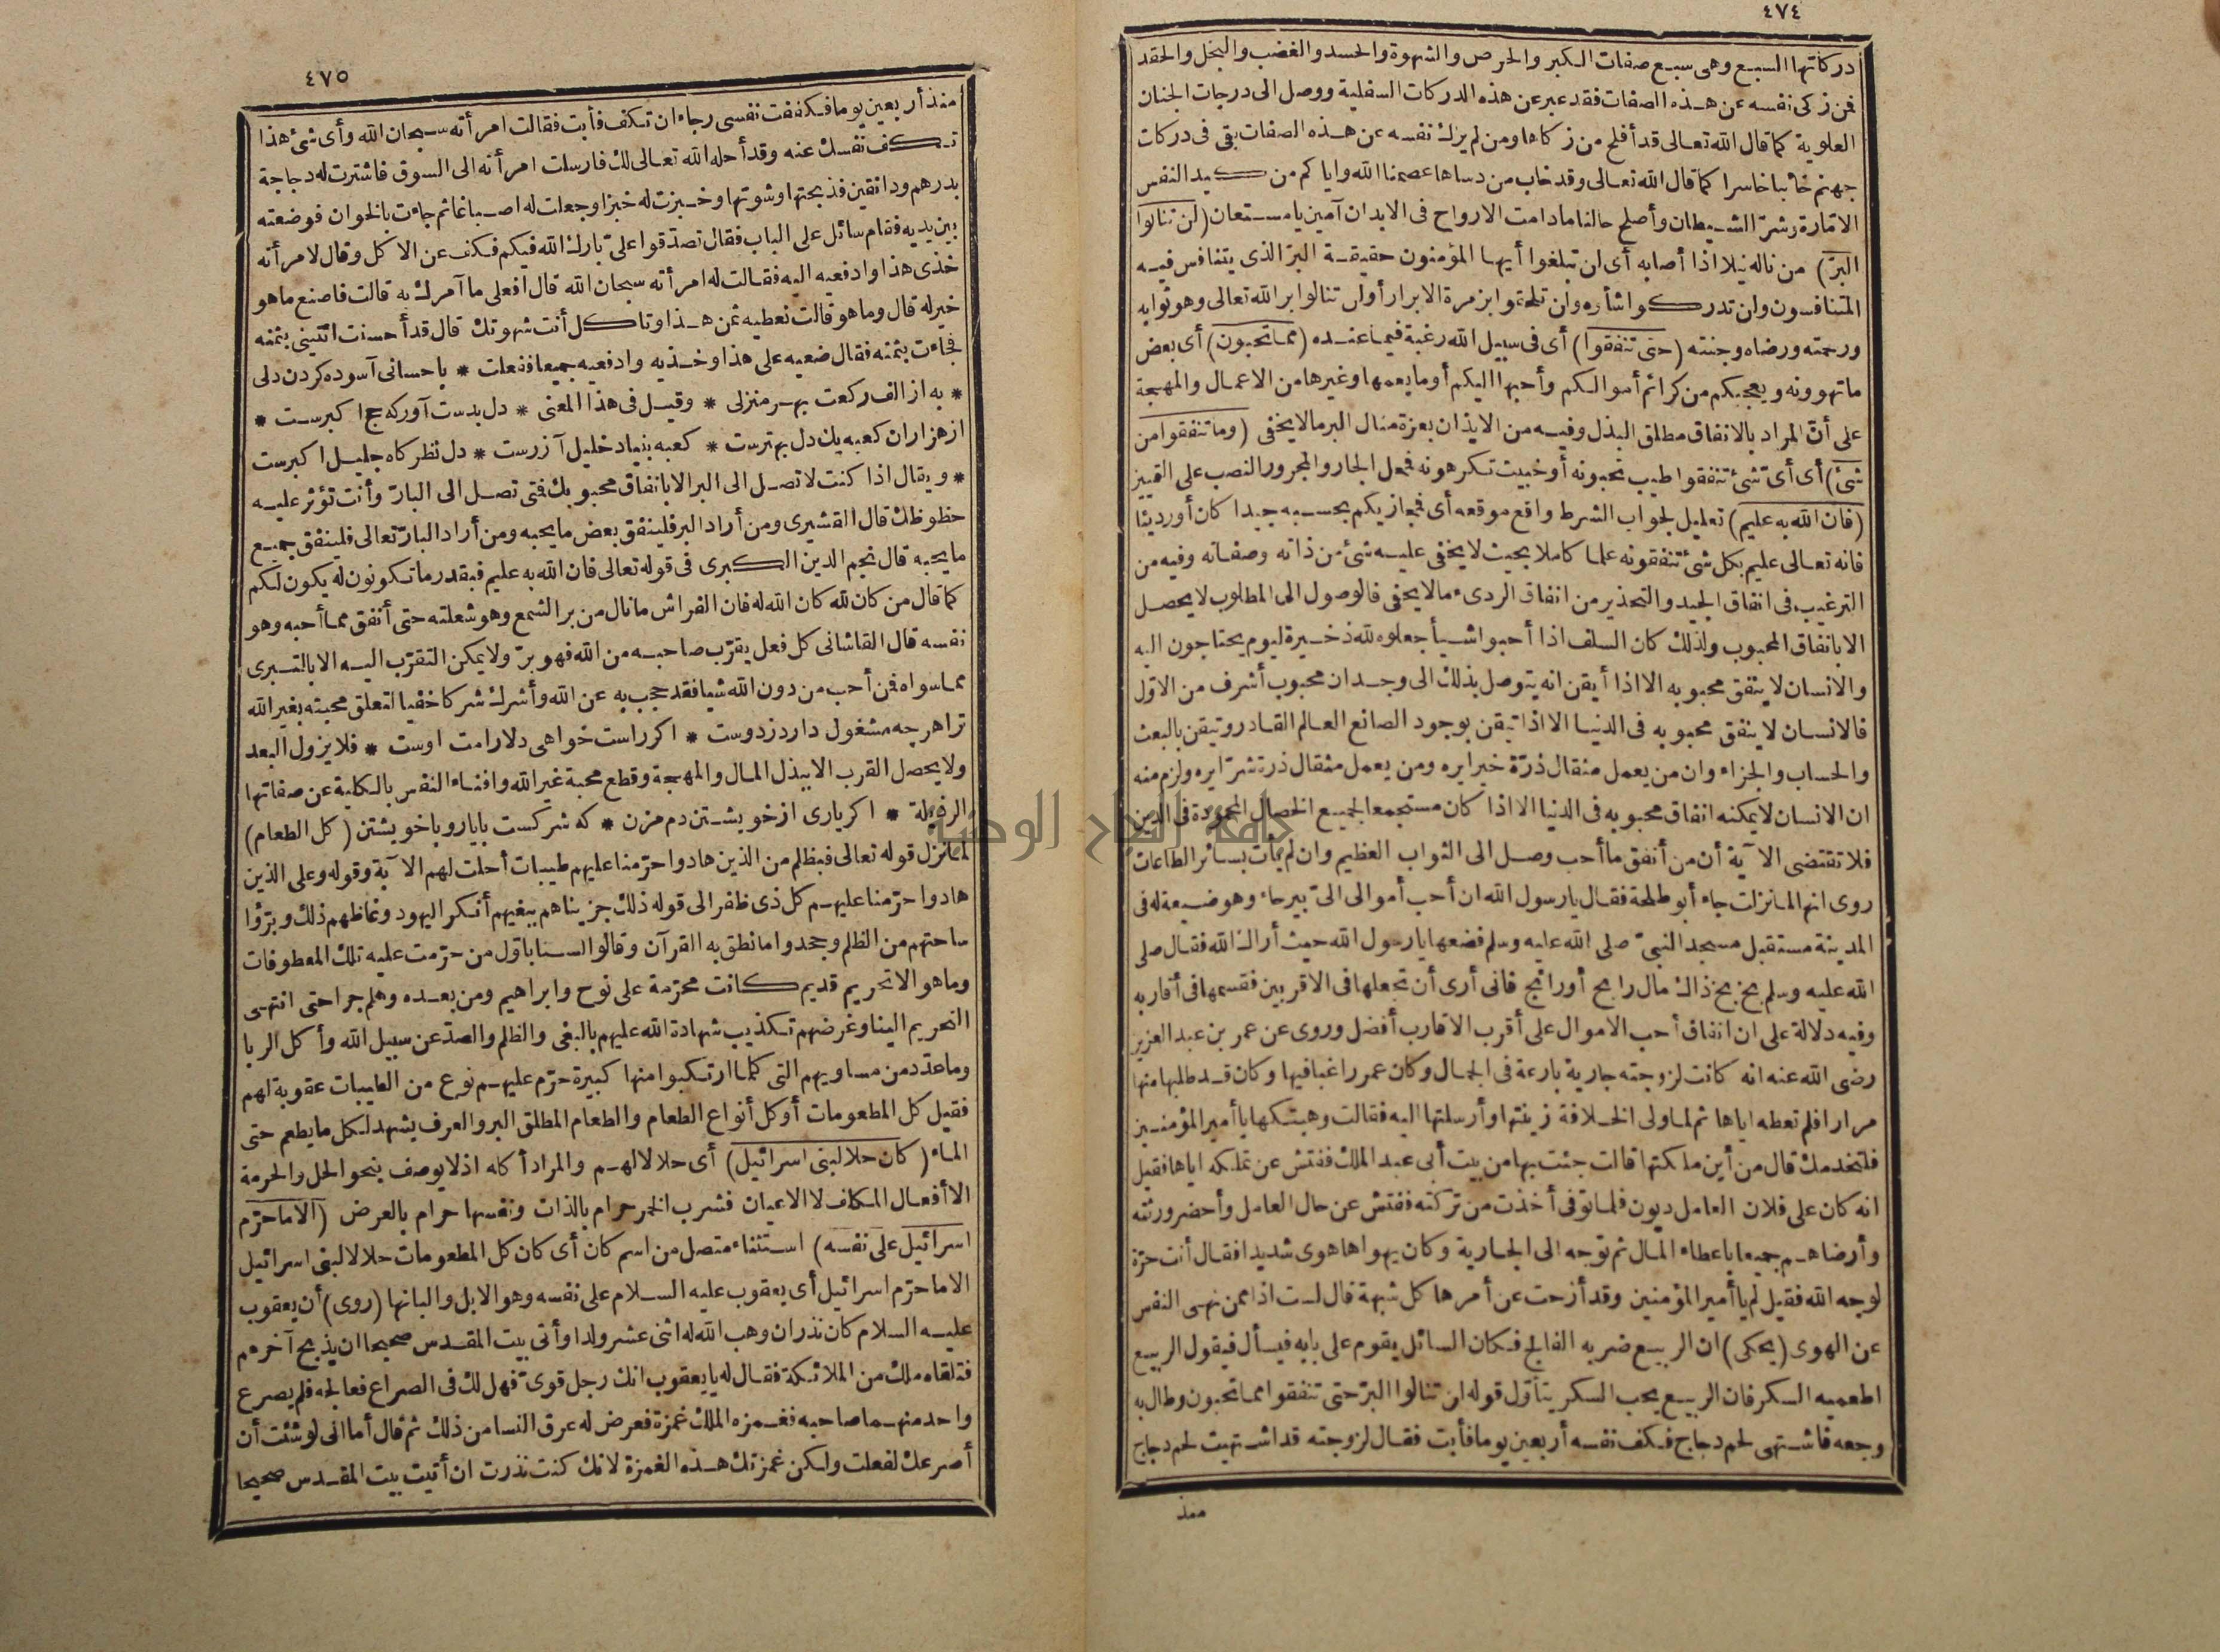 ٤٧٤
دركاتها السبع وهى سبع صفات الكبر والحرص والشهوة والحسد والغضب والبخل والحقد
فمن زكى نفسه عن هذه الصفات فقد عبر عن هذه الدركات السفلية ووصل الى درجات الجنان
العلوية كما قال الله تعالى قد أفلح من زكاها ومن لم يزك نفسه عن هذه الصفات بقى فى دركات
جهنم خائبا خاسرا كما قال الله تعالى وقد خاب من دساها عصمنا الله واياكم من كيد النفس
الامّارة وشرّ الشيطان وأصلح حالنا مادامت الارواح فى الابدان آمين يا مستعان (لن تنالوا
البرّ) من ناله نيلا اذا أصابه أى لن تبلغوا أيها المؤمنون حقيقة البرّ الذى يتنافس فيه
المتنافسون ولن تدركوا شأوه ولن تلحقوا بزمرة الابرار أو لن تنالوا بر الله تعالى وهو ثوابه
ورحمته ورضاه وجنته (حتى تنفقوا) أى فى سبيل الله رغبة فيما عنده (مما تحبون) أى بعض
ما تهوونه ويعجبكم من كرائم أموالكم وأحبها اليكم أو ما يعمها وغيرها من الاعمال والمهجة
على أنّ المراد بالانفاق مطلق البذل وفيه من الايذان بعزة منال البر ما لا يخفى (وما تنفقوا من
شئ) أى أىّ شئ تنفقوا طيب تحبونه أو خبيث تكرهونه فمحل الجار والمجرور النصب على التمييز
(فان الله به عليم) تعليل لجواب الشرط واقع موقعه أى فمجازيكم بحسبه جيدا كان أو رديئا
فانه تعالى عليم بكل شئ تنفقونه علما كاملا بحيث لا يخفى عليه شئ من ذاته وصفاته وفيه من
الترغيب فى انفاق الجيد والتحذير من انفاق الردىء ما لا يخفى فالوصول الى المطلوب لا يحصل
الا بانفاق المحبوب ولذلك كان السلف اذا أحبوا شيأ جعلوه لله ذخيرة ليوم يحتاجون اليه
والانسان لا ينفق محبوبه الا اذا أيقن انه يتوصل بذلك الى وجدان محبوب أشرف من الاوّل
فالانسان لا ينفق محبوبه فى الدنيا الا اذا تيقن بوجود الصانع العالم القادر وتيقن بالبعث
والحساب والجزاء وان من يعمل مثقال ذرّة خيرا يره ومن يعمل مثقال ذرة شرّا يره ولزم منه
ان الانسان لا يمكنه انفاق محبوبه فى الدنيا الا اذا كان مستجمعا لجميع الخصال المحمودة فى الدين
فلا تقتضى الآية أن من أنفق ما أحب وصل الى الثواب العظيم وان لم يأت بسائر الطاعات
روى انها لما نزلت جاء أبو طلحة فقال يا رسول الله ان أحب أموالى الىّ بيرحاء وهو ضيعة له فى
المدينة مستقبل مسجد النبىّ صلى الله عليه وسلم فضعها يا رسول الله حيث أراك الله فقال صلى
الله عليه وسلم بخ بخ ذاك مال رابح أو رائج فانى أرى أن تجعلها فى الاقربين فقسمها فى أقاربه
وفيه دلالة على ان انفاق أحب الاموال على أقرب الاقارب أفضل وروى عن عمر بن عبد العزيز
رضى الله عنه انه كانت لزوجته جارية بارعة فى الجمال وكان عمر راغبا فيها وكان قد طلبها منها
مرارا فلم تعطه اياها ثم لما ولى الخلافة زينتها وأرسلتها اليه فقالت وهبتكها يا أمير المؤمنين
فلتخدمك قال من أين ملكتها قالت جئت بها من بيت أبى عبد الملك ففتش عن تملكه اياها فقيل
انه كان على فلان العامل ديون فلما توفى أخذت من تركته ففتش عن حال العامل وأحضر ورثته
وأرضاهم جميعا باعطاء المال ثم توجه الى الجارية وكان يهواها هوى شديدا فقال أنت حرّة
لوجه الله فقيل لم يا أمير المؤمنين وقد أزحت عن أمرها كل شبهة قال لست اذا ممن نهى النفس
عن الهوى (يحكى) ان الربيع ضربه الفالج فكان السائل يقوم على بابه فيسأل فيقول الربيع
اطعميه السكر فان الربيع يحب السكر يتأوّل قوله لن تنالوا البرّ حتى تنفقوا مما تحبون وطال به
وجعه فاشتهى لحم دجاج فكف نفسه أربعين يوما فأبت فقال لزوجته قد اشتهيت لحم دجاج
منذ
٤٧٥
منذ أربعين يوما فكففت نفسى رجاء ان تكف فأبت فقالت امرأته سبحان الله وأى شئ هذا
تكف نفسك عنه وقد أحله الله تعالى لك فارسلت امرأته الى السوق فاشترت له دجاجة
بدرهم ودانقين فذبحتها وشوتها وخبزت له خبزا وجعلت له اصباغا ثم جاءت بالخوان فوضعته
بين يديه فقام سائل على الباب فقال تصدّقوا علىّ بارك الله فيكم فكف عن الاكل وقال لامرأته
خذى هذا وادفعيه اليه فقالت له امرأته سبحان الله قال افعلى ما آمرك به قالت فاصنع ما هو
خير له قال وما هو قالت نعطيه ثمن هذا وتاكل أنت شهوتك قال قد أحسنت ائتينى بثمنه
فجاءت بثمنه فقال ضعيه على هذا وخذيه وادفعيه جميعا ففعلت * باحسانى آسوده كردن دلى
* به از الف ركعت بهر منزلى * وقيل فى هذا المعنى * دل بدست آور كه حج اكبرست *
از هزاران كعبه يك دل بهترست * كعبه بنياد خليل آزرست * دل نظركاه جليل اكبرست
* ويقال اذا كنت لا تصل الى البر الا بانفاق محبوبك فمتى تصل الى البارّ وأنت تؤثر عليه
حظوظك قال القشيرى ومن أراد البر فلينفق بعض ما يحبه ومن أراد البارّ تعالى فلينفق جميع
ما يحبه قال نجم الدين الكبرى فى قوله تعالى فان الله به عليم فبقدر ما تكونون له يكون لكم
كما قال من كان لله كان الله له فان الفراش ما نال من بر الشمع وهو شعلته حتى أنفق مما أحبه وهو
نفسه قال القاشانى كل فعل يقرّب صاحبه من الله فهو برّ ولا يمكن التقرّب اليه الا بالتبرى
مما سواه فمن أحب من دون الله شيا فقد حجب به عن الله وأشرك شركا خفيا لتعلق محبته بغير الله
ترا هر چه مشغول دارد زدوست * اكر راست خواهى دلارامت اوست * فلا يزول البعد
ولا يحصل القرب الا ببذل المال والمهجة وقطع محبة غير الله وافناء النفس بالكلية عن صفاتها
الرذيلة * اكر يارى از خويشتن دم مزن * كه شركست بايار وباخويشتن (كل الطعام)
لما نزل قوله تعالى فبظلم من الذين هادوا حرّمنا عليهم طيبات أحلت لهم الآية وقوله وعلى الذين
هادوا حرّمنا عليهم كل ذى ظفر الى قوله ذلك جزيناهم ببغيهم أنكر اليهود وغاظهم ذلك وبرّؤا
ساحتهم من الظلم وجحدوا ما نطق به القرآن وقالوا لسنا باوّل من حرّمت عليه تلك المطعومات
وما هو الا تحريم قديم كانت محرّمة على نوح وابراهيم ومن بعده وهلم جرا حتى انتهى
التحريم الينا وغرضهم تكذيب شهادة الله عليهم بالبغى والظلم والصدّ عن سبيل الله وأكل الربا
وما عدّد من مساويهم التى كلما ارتكبوا منها كبيرة حرّم عليهم نوع من الطيبات عقوبة لهم
فقيل كل المطعومات أو كل أنواع الطعام والطعام المطلق البر والعرف يشهد لكل ما يطعم حتى
الماء (كان حلا لبنى اسرائيل) أى حلالا لهم والمراد أكله اذ لا يوصف بنحو الحل والحرمة
الا أفعال المكلف لا الاعيان فشرب الخمر حرام بالذات ونفسها حرام بالعرض (الا ما حرّم
اسرائيل على نفسه) استثناء متصل من اسم كان أى كان كل المطعومات حلالا لبنى اسرائيل
الا ما حرّم اسرائيل أى يعقوب عليه السلام على نفسه وهو الابل والبانها (روى) أن يعقوب
عليه السلام كان نذر ان وهب الله له اثنى عشر ولدا وأتى بيت المقدس صحيحا ان يذبح آخرهم
فتلقاه ملك من الملائكة فقال له يا يعقوب انك رجل قوىّ فهل لك فى الصراع فعالجه فلم يصرع
واحد منهما صاحبه فغمزه الملك غمزة فعرض له عرق النسا من ذلك ثم قال أما انى لو شئت أن
أصرعك لفعلت ولكن غمزتك هذه الغمزة لانك كنت نذرت ان أتيت بيت المقدس صحيحا
جامعة النجاح الوطنية